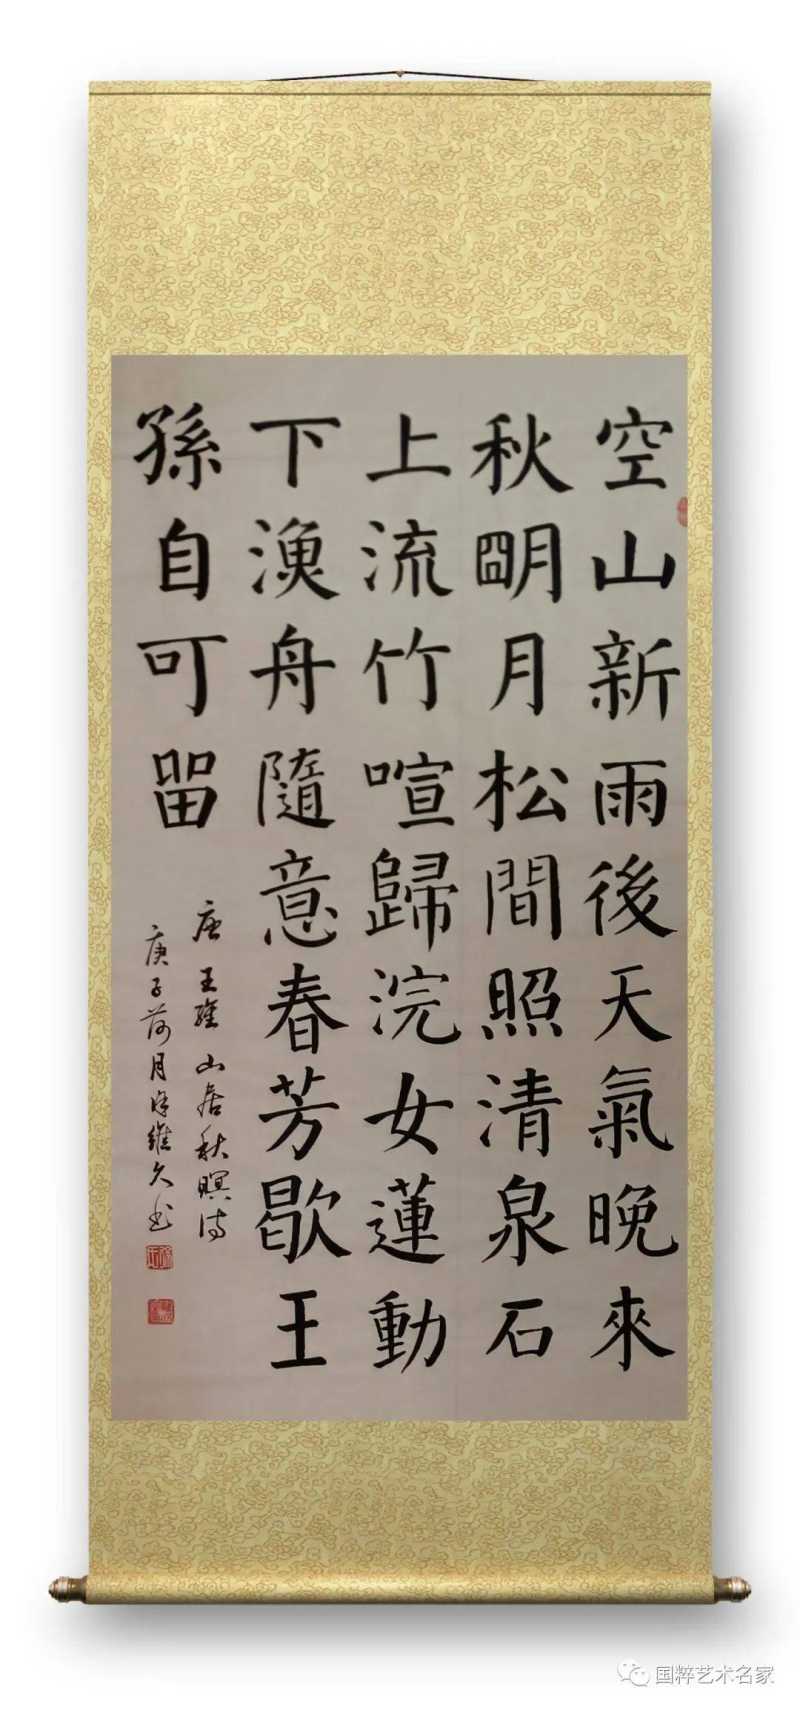 空山新雨後天氣晚來
秋明月松間照清泉石
上流竹喧歸浣女蓮動
下漁舟隨意春芳歇王
孫自可留
唐王維山居秋暝詩
庚子荷月 維久书
国粹艺术名家